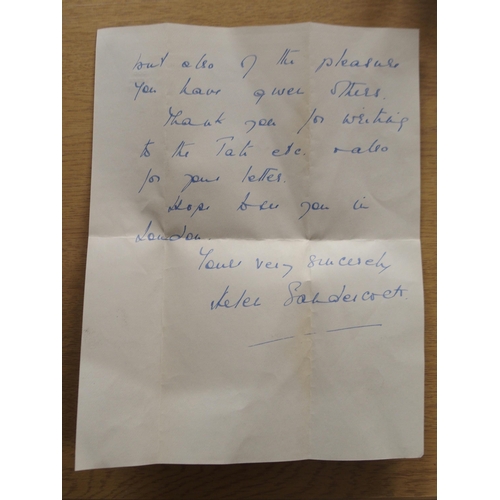 but also of the pleasure
you have given others.
Thank you for writing
to the Tate etc. & also
for your letter.
Hope to see you in
London.
Yours very sincerely
Helen Sandercock